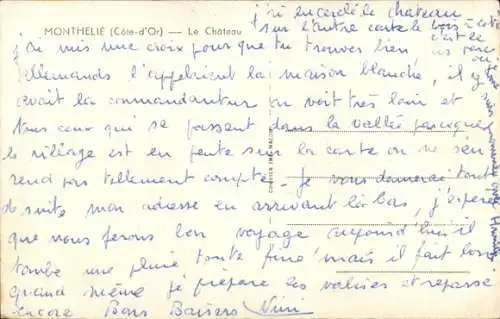 j'ai encerclé le chateau
MONTHELIE (Côte-d'Or) — Le Château
sur l'autre carte le bois à coté
j'ai mis une croix pour que tu trouves bien c'est le
allemands l'appelaient la maison blanche, il y
avait la commandantur on voit très loin et
tous ceux qui se passent dans la vallée parceque
le village est en pente sur la carte on ne s'en
rend pas tellement compte. Je vous donnerai tout
de suite mon adresse en arrivant là bas, j'espère
que nous ferons bon voyage aujourd'hui il
tombe une pluie toute fine mais il fait bon
quand même je prépare les valises et repasse
encore Bons Baisers Nini